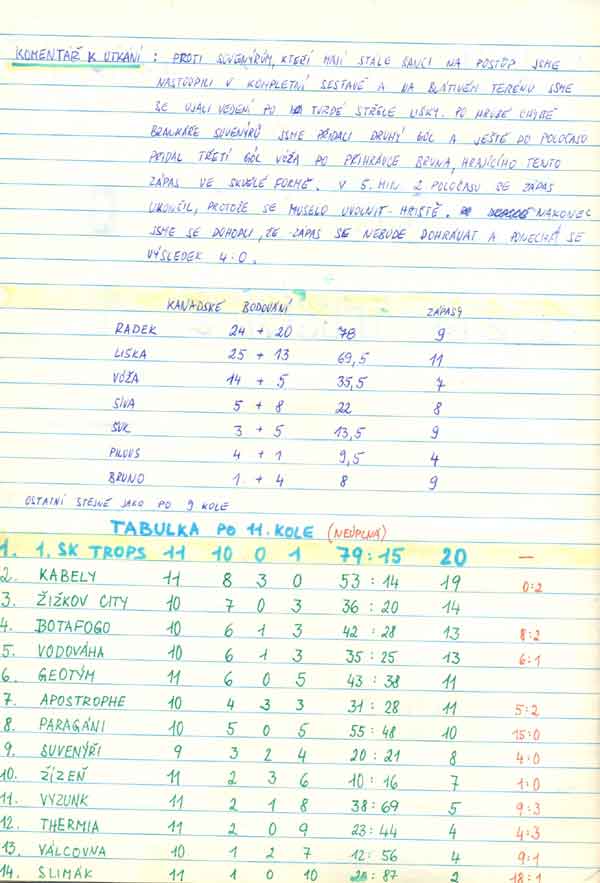 KOMENTÁŘ K UTKÁNÍ : PROTI SUVENÝRŮM, KTEŘÍ MAJÍ STÁLE ŠANCI NA POSTUP JSME
NASTOUPILI V KOMPLETNÍ SESTAVĚ A NA BLÁTIVÉM TERÉNU JSME
SE UJALI VEDENÍ PO TVRDÉ STŘELE LIŠKY. PO HRUBÉ CHYBĚ
BRANKÁŘE SUVENÝRŮ JSME PŘIDALI DRUHÝ GÓL A JEŠTĚ DO POLOČASU
PŘIDAL TŘETÍ GÓL VÓŽA PO PŘIHRÁVCE BRUNA, HRAJÍCÍHO TENTO
ZÁPAS VE SKVĚLÉ FORMĚ. V 5. MIN. 2 POLOČASU SE ZÁPAS
UKONČIL, PROTOŽE SE MUSELO UVOLNIT HŘIŠTĚ. NAKONEC
JSME SE DOHODLI, ŽE ZÁPAS SE NEBUDE DOHRÁVAT A PONECHÁ SE
VÝSLEDEK 4:0.
KANADSKÉ BODOVÁNÍ ZÁPASY
RADEK 24 + 20 78 9
LIŠKA 25 + 13 69,5 11
VÓŽA 14 + 5 35,5 7
SÍVA 5 + 8 22 8
SUK 3 + 5 13,5 9
PILOUS 4 + 1 9,5 4
BRUNO 1 + 4 8 9
OSTATNÍ STEJNĚ JAKO PO 9 KOLE
TABULKA PO 11. KOLE (NEÚPLNÁ)
1. 1. SK TROPS 11 10 0 1 79:15 20 —
2. KABELY 11 8 3 0 53 : 14 19 0:2
3. ŽIŽKOV CITY 10 7 0 3 36 : 20 14
4. BOTAFOGO 10 6 1 3 42 : 28 13 8:2
5. VODOVÁHA 10 6 1 3 35 : 25 13 6:1
6. GEOTÝM 11 6 0 5 43 : 38 11
7. APOSTROPHE 10 4 3 3 31 : 28 11 5:2
8. PARAGÁNI 10 5 0 5 55 : 48 10 15:0
9. SUVENÝŘI 9 3 2 4 20 : 21 8 4:0
10. ŽÍZEŇ 11 2 3 6 10 : 16 7 1:0
11. VYZUNK 11 2 1 8 38 : 69 5 9:3
12. THERMIA 11 2 0 9 23:44 4 4:3
13. VÁLCOVNA 10 1 2 7 12: 56 4 9:1
14. SLIMÁK 11 1 0 10 : 87 2 18:1